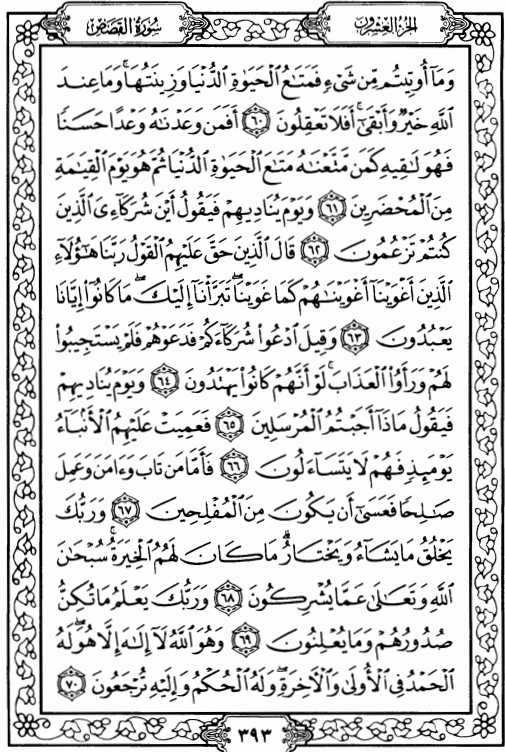 الجزء العشرون
سورة القصص
وَمَآ أُوتِيتُم مِّن شَىْءٍ فَمَتَـٰعُ ٱلْحَيَوٰةِ ٱلدُّنْيَا وَزِينَتُهَا ۚ وَمَا عِندَ
ٱللَّهِ خَيْرٌ وَأَبْقَىٰٓ ۚ أَفَلَا تَعْقِلُونَ ٦٠ أَفَمَن وَعَدْنَـٰهُ وَعْدًا حَسَنًا
فَهُوَ لَـٰقِيهِ كَمَن مَّتَّعْنَـٰهُ مَتَـٰعَ ٱلْحَيَوٰةِ ٱلدُّنْيَا ثُمَّ هُوَ يَوْمَ ٱلْقِيَـٰمَةِ
مِنَ ٱلْمُحْضَرِينَ ٦١ وَيَوْمَ يُنَادِيهِمْ فَيَقُولُ أَيْنَ شُرَكَآءِىَ ٱلَّذِينَ
كُنتُمْ تَزْعُمُونَ ٦٢ قَالَ ٱلَّذِينَ حَقَّ عَلَيْهِمُ ٱلْقَوْلُ رَبَّنَا هَـٰٓؤُلَآءِ
ٱلَّذِينَ أَغْوَيْنَآ أَغْوَيْنَـٰهُمْ كَمَا غَوَيْنَا ۖ تَبَرَّأْنَآ إِلَيْكَ ۖ مَا كَانُوٓا۟ إِيَّانَا
يَعْبُدُونَ ٦٣ وَقِيلَ ٱدْعُوا۟ شُرَكَآءَكُمْ فَدَعَوْهُمْ فَلَمْ يَسْتَجِيبُوا۟
لَهُمْ وَرَأَوُا۟ ٱلْعَذَابَ ۚ لَوْ أَنَّهُمْ كَانُوا۟ يَهْتَدُونَ ٦٤ وَيَوْمَ يُنَادِيهِمْ
فَيَقُولُ مَاذَآ أَجَبْتُمُ ٱلْمُرْسَلِينَ ٦٥ فَعَمِيَتْ عَلَيْهِمُ ٱلْأَنۢبَآءُ
يَوْمَئِذٍ فَهُمْ لَا يَتَسَآءَلُونَ ٦٦ فَأَمَّا مَن تَابَ وَءَامَنَ وَعَمِلَ
صَـٰلِحًا فَعَسَىٰٓ أَن يَكُونَ مِنَ ٱلْمُفْلِحِينَ ٦٧ وَرَبُّكَ
يَخْلُقُ مَا يَشَآءُ وَيَخْتَارُ ۗ مَا كَانَ لَهُمُ ٱلْخِيَرَةُ ۚ سُبْحَـٰنَ
ٱللَّهِ وَتَعَـٰلَىٰ عَمَّا يُشْرِكُونَ ٦٨ وَرَبُّكَ يَعْلَمُ مَا تُكِنُّ
صُدُورُهُمْ وَمَا يُعْلِنُونَ ٦٩ وَهُوَ ٱللَّهُ لَآ إِلَـٰهَ إِلَّا هُوَ ۖ لَهُ
ٱلْحَمْدُ فِى ٱلْأُولَىٰ وَٱلْـَٔاخِرَةِ ۖ وَلَهُ ٱلْحُكْمُ وَإِلَيْهِ تُرْجَعُونَ ٧٠
٣٩٣